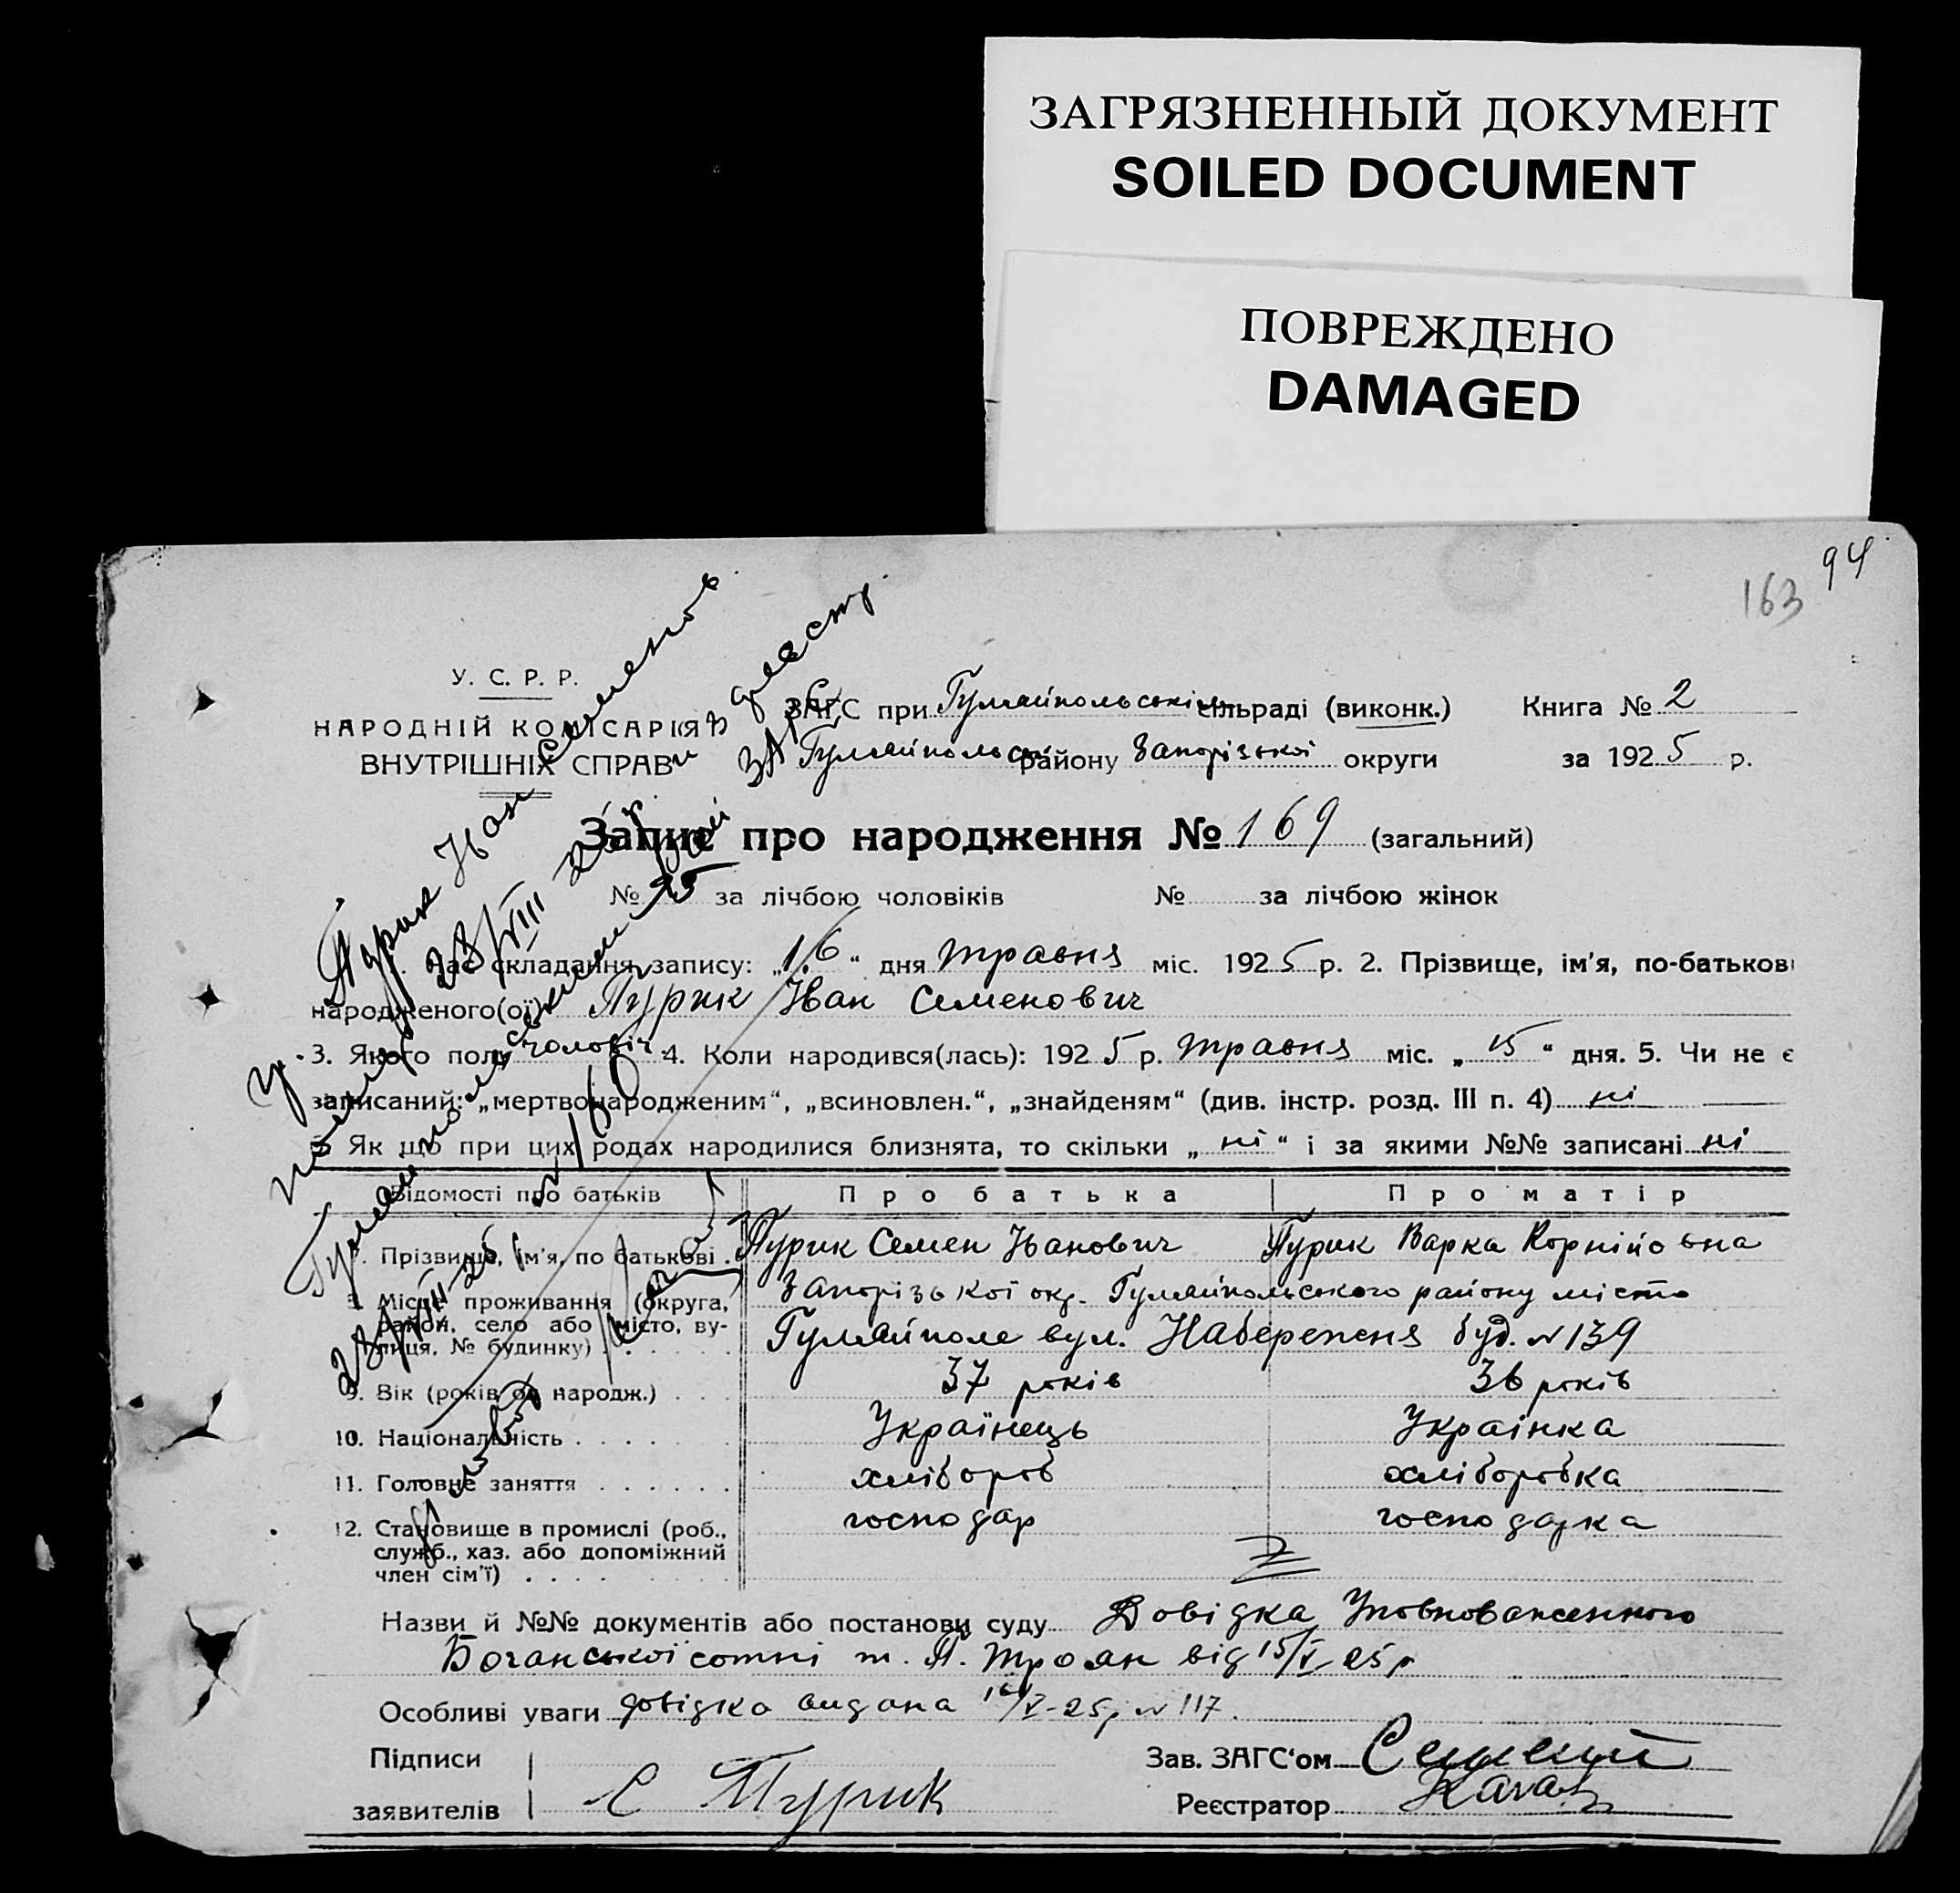 ЗАГРЯЗНЕННЫЙ ДОКУМЕНТ
SOILED DOCUMENT
ПОВРЕЖДЕНО
DAMAGED
94
163
У. С. Р. Р.
НАРОДНІЙ КОМІСАРІЯТ
ВНУТРІШНІХ СПРАВ
ЗАГС при Гуляйпольській сільраді (виконк.) Книга № 2
Гуляйпольськ району Запорізької округи за 1925 р.
Запис про народження № 169 (загальний)
№ 95 за лічбою чоловіків № за лічбою жінок
Час складання запису: „16“ дня травня міс. 1925 р. 2. Прізвище, ім'я, по-батькові
народженого(ої) Пурик Іван Семенович
3. Якого полу чоловіч. 4. Коли народився(лась): 1925 р. травня міс. „15“ дня. 5. Чи не є
записаний: „мертвонародженим“, „всиновлен.“, „знайденям“ (див. інстр. розд. III п. 4) ні
Як що при цих родах народилися близнята, то скільки „ні“ і за якими №№ записані ні
Відомості про батьків Про батька Про матір
Прізвище, ім'я, по батькові Пурик Семен Іванович Пурик Варка Корнійовна
Місце проживання (округа, Запорізької окр. Гуляйпольського району місто
район, село або місто, ву-
лиця, № будинку) Гуляйполе вул. Набережня буд. № 139
9. Вік (років од народж.) 37 років 36 років
10. Національність Українець Українка
11. Головне заняття хлібороб хліборобка
12. Становище в промислі (роб., господар господарка
служб., хаз. або допоміжний
член сім'ї)
Назви й №№ документів або постанови суду Довідка Уповноваженного
Бочанської сотні т. П. Троян від 15/V-25 р
Особливі уваги довідка видана 16/V-25 р № 117.
Підписи
заявителів С Пурик
Зав. ЗАГС‘ом
Реєстратор
Пурик Иван Семенов
28/VIII 26 р.